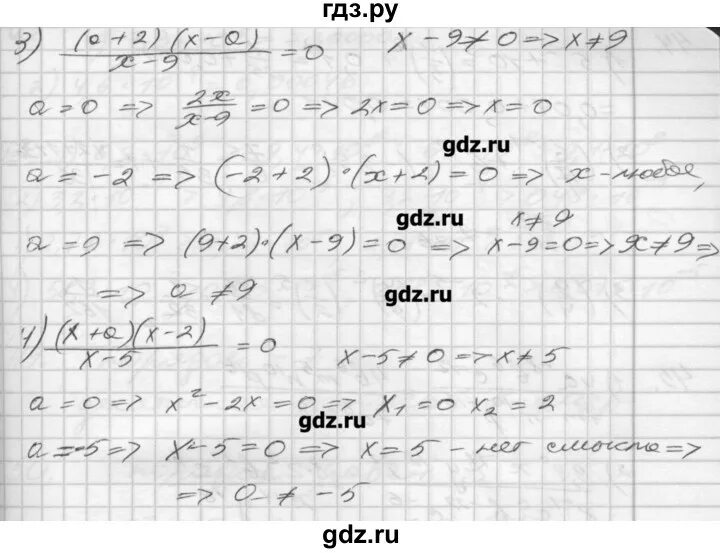 гдз.ру
3) (a+2)(x-a)/(x-9) = 0   x-9≠0 => x≠9
a=0 => 2x/(x-9) = 0 => 2x=0 => x=0
gdz.ru
a=-2 => (-2+2)·(x+2)=0 => x-любое,
gdz.ru x≠9
a=9 => (9+2)·(x-9)=0 => x-9=0 => x≠9 =>
=> a≠9 gdz.ru
4) (x+a)(x-2)/(x-5) = 0   x-5≠0 => x≠5
a=0 => x²-2x=0 => x₁=0 x₂=2
gdz.ru
a=-5 => x-5=0 => x=5 - нет смысла =>
=> a≠-5
gdz.ru